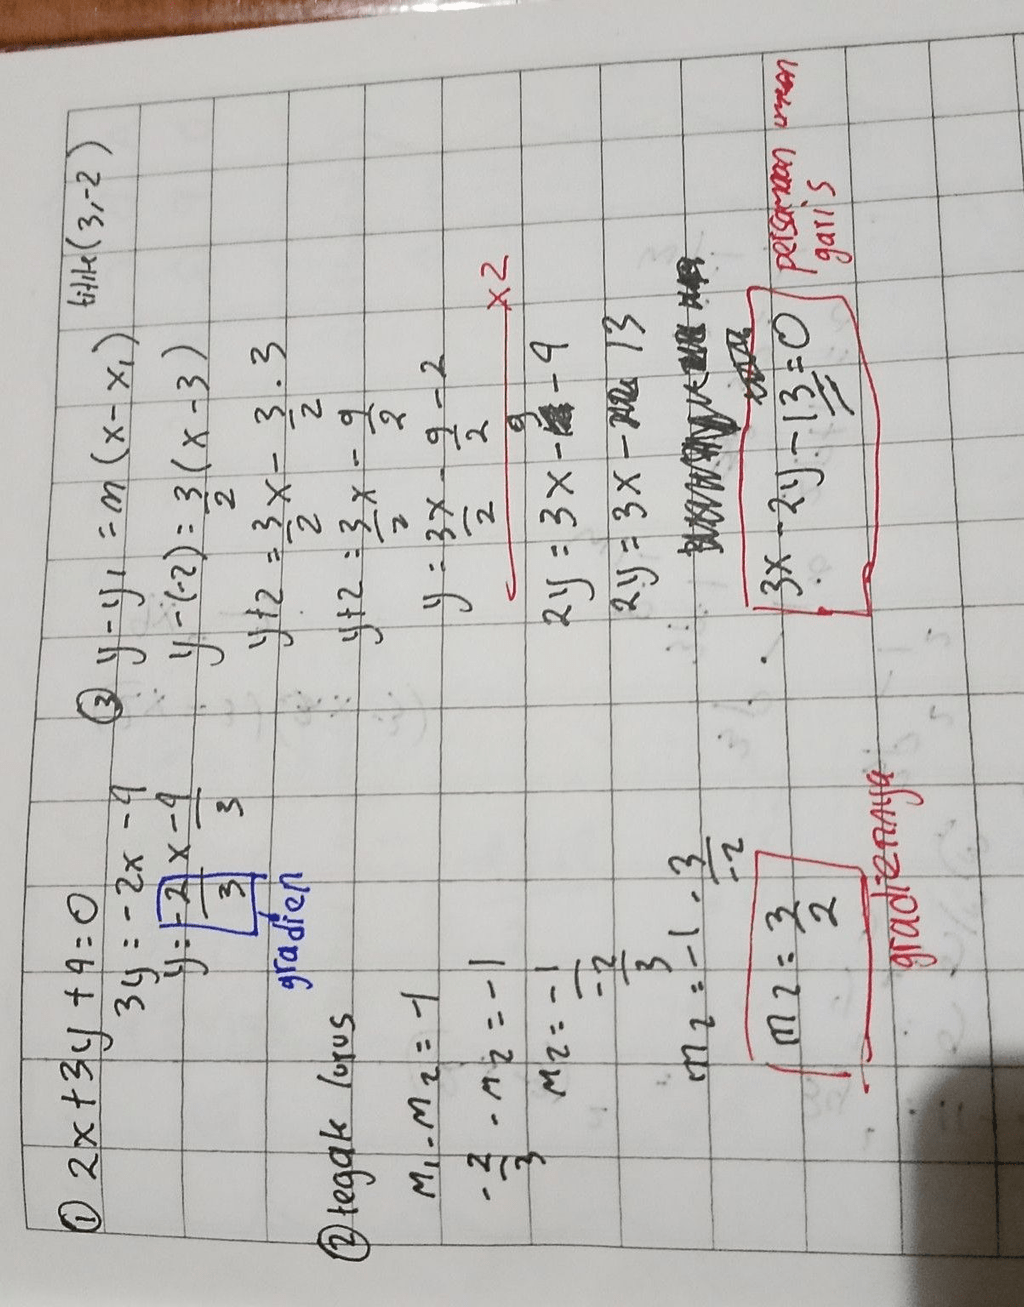 ① 2x + 3y + 9 = 0
3y = -2x - 9
y = -2/3 x - 9/3
gradien
② tegak lurus
m₁ . m₂ = -1
-2/3 . m₂ = -1
m₂ = -1/(-2/3)
m₂ = -1 . 3/-2
m₂ = 3/2
gradiennya
③ y - y₁ = m (x - x₁) titik (3, -2)
y - (-2) = 3/2 (x - 3)
y + 2 = 3/2 x - 3/2 . 3
y + 2 = 3/2 x - 9/2
y = 3x/2 - 9/2 - 2
x2
2y = 3x - 9 - 4
2y = 3x - 13
3x - 2y - 13 = 0
persamaan umum
garis